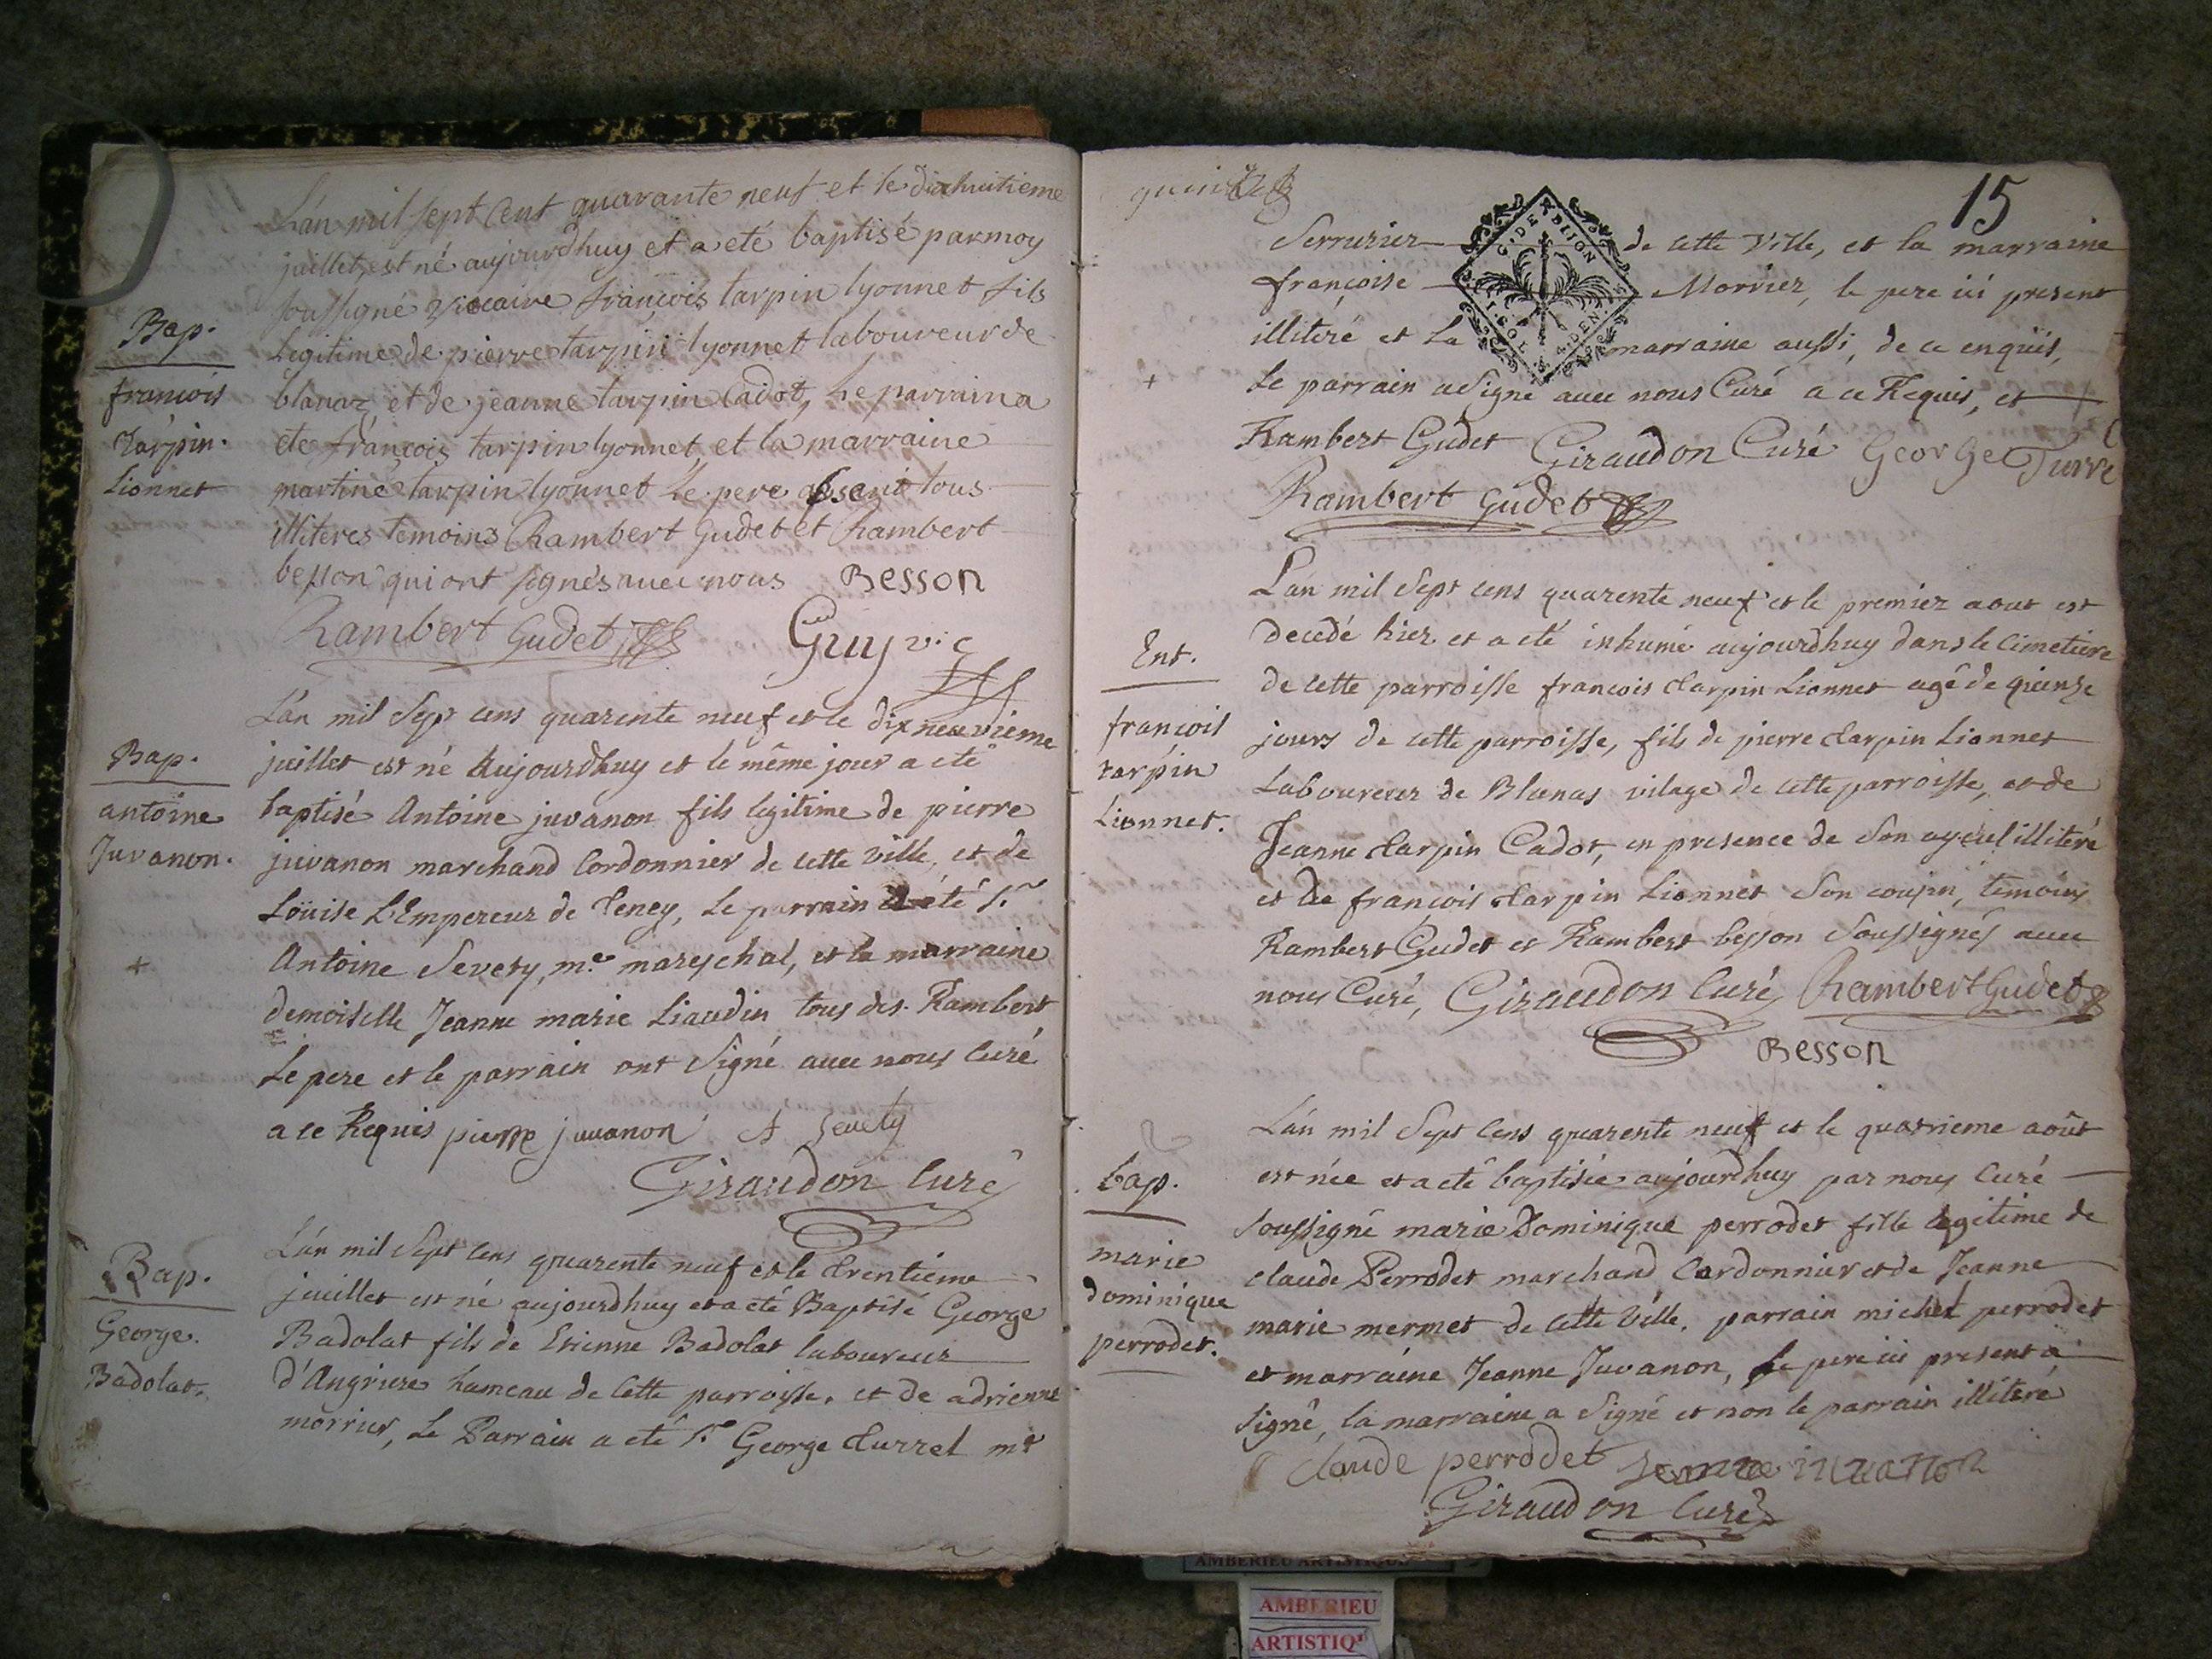 L'an mil sept cent quarante neuf et le dixhuitieme
juillet, est né aujourdhuy et a eté baptisé par moy
soussigné Vicaire françois tarpin lyonnet fils
Legitime de pierre tarpin lyonnet laboureur de
blanaz, et de jeanne tarpin Cadot, Le parrain a
ete françois tarpin lyonnet et la marraine
martine tarpin lyonnet Le pere absent tous
illiteres temoins Rambert Gudet et Rambert
besson qui ont signés avec nous Besson
Rambert Gudet Guy vic
Bap.
francois
Tarpin
Lionnet
L'an mil Sept cens quarente neuf et le dix neuvieme
juillet est né Aujourdhuy et le même jour a eté
baptisé Antoine juvanon fils legitime de pierre
juvanon marchand Cordonnier de cette ville, et de
Loüise L'Empereur de Teney, Le parrain a été Sr
Antoine Severy, me mareschal, et la marraine
demoiselle Jeanne marie Liaudin tous de St Rambert
Le pere et le parrain ont Signé avec nous Curé
a ce Requis pierre juvanon A Severy
Giraudon Curé
Bap.
antoine
Juvanon.
+
L'an mil Sept cens quarente neuf et le trentieme
juillet est né aujourdhuy et a eté Baptisé George
Badolat fils de Etienne Badolat laboureur
d'Angriere hameau de Cette parroisse, et de adrienne
morrier, Le Parrain a eté Sr George Turrel me
Bap.
George
Badolat.
quinze
15
G. DE DIJON
Serrurier de cette Ville, et la marraine
françoise Morrier, le pere ici present
illiteré et La marraine aussi, de ce enquis,
Le parrain a Signé avec nous Curé a ce Requis, et
Rambert Gudet Giraudon Curé George Turre
Rambert Gudet
+
L'an mil Sept cens quarente neuf et le premier aout est
decedé hier et a eté inhumé aujourdhuy dans le Cimetiere
de cette parroisse francois tarpin Lionnet agé de quinze
jours de cette parroisse, fils de pierre tarpin Lionnet
Laboureur de Blanas vilage de cette parroisse, et de
Jeanne tarpin Cadot, en presence de Son ayeul illiteré
et de francois tarpin Lionnet Son cousin, temoins
Rambert Gudet et Rambert besson Soussignés avec
nous Curé, Giraudon Curé Rambert Gudet
Besson
Ent.
francois
tarpin
Lionnet.
L'an mil Sept Cens quarente neuf et le quatrieme août
est née et a eté baptisée aujourdhuy par nous Curé
Soussigné marie Dominique perrodet fille legitime de
claude Perrodet marchand Cordonnier et de Jeanne
marie mermet de Cette Ville. parrain michel perrodet
et marraine Jeanne Juvanon, Le pere ici present a
Signé, la marraine a Signé et non le parrain illiteré
Claude perrodet Jeanne juvanon
Giraudon Curé
bap.
marie
dominique
perrodet.
AMBERIEU ARTISTIQUE
AMBERIEU
ARTISTIQ